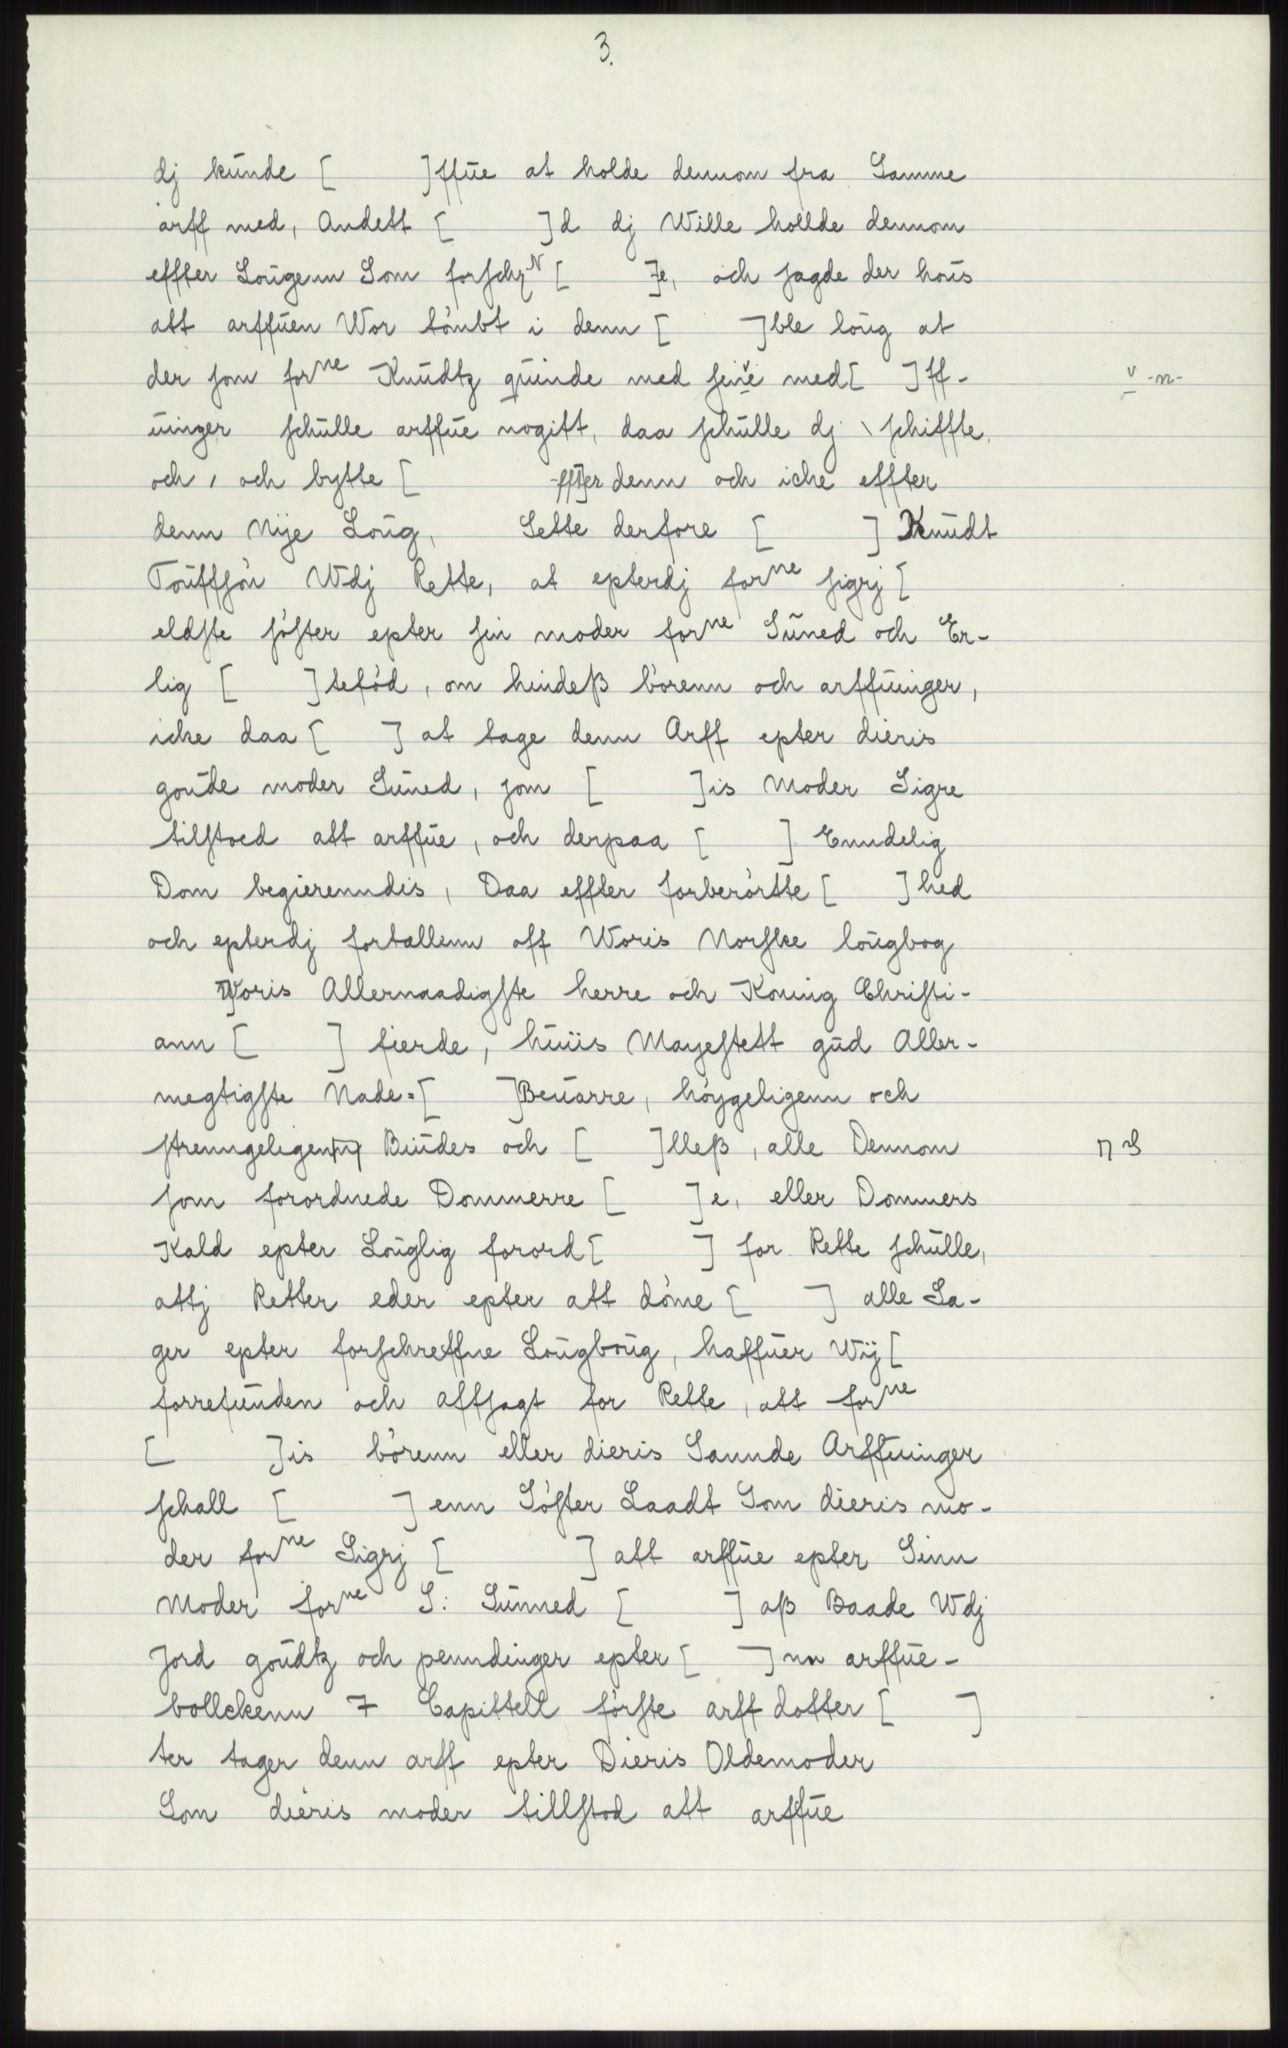 3.
dj kunde [ ]ffue at holde dennom fra Samme
arff med, Andett [ ]d dj Wille hollde dennom
effter Lougenn Som forschr [ ]e, och sagde der hous
att arffuen Wor tómbt i denn [ ]ble loug at
der som forne Knudtz quinde med sine med[ ]ff- v -n-
uinger schulle arffue nogitt, daa schulle dj \ schiffte,
och, och bytte [ -fft]er denn och iche effter
denn Nÿe Loug, Sette derfore [ ] Knudt
Touffsón Wdj Rette, at epterdj forne sigrj [
eldste sóster epter sin moder forne Suned och Er-
lig [ ]tefód, om hindeß bórenn och arffuinger,
icke daa [ ] at tage denn Arff epter dieris
goude moder Suned, som [ ]is Moder Sigre
tilstoed att arffue, och derpaa [ ] Enndelig
Dom begierenndis, Daa effter forberórtte [ ]hed
och epterdj fortallenn aff Woris Norske lougbog
W]oris Allernaadigste herre och Koning Christi-
ann [ ] fierde, huiis Mayestett gud Aller-
megtigste Nade=[ ]Beuarre, hóygeligenn och
strenngeligenn Biudes och [ ]lleß, alle Dennom
som forordnede Dommerre [ ]e, eller Dommers
Kald epter Louglig forord[ ] for Rette schulle,
attj Retter eder epter att dóme [ ] alle Sa-
ger epter forschreffne Lougboug, haffuer Wÿ [
forrefunden och affsagt for Rette, att forne
[ ]is bórenn eller dieris Sannde Arffuinger
schall [ ] enn Sóster Laadt Som dieris mo-
der forne Sigrj [ ] att arffue epter Sinn
Moder forne S: Sunned [ ] aß Baade Wdj
Jord goudtz och penndinger epter [ ]nn arffue-
bollckenn 7 Capittell fórste arff dotter [ ]
ter tager denn arff epter Dieris Oldemoder
Som dieris moder tillstod att arffue